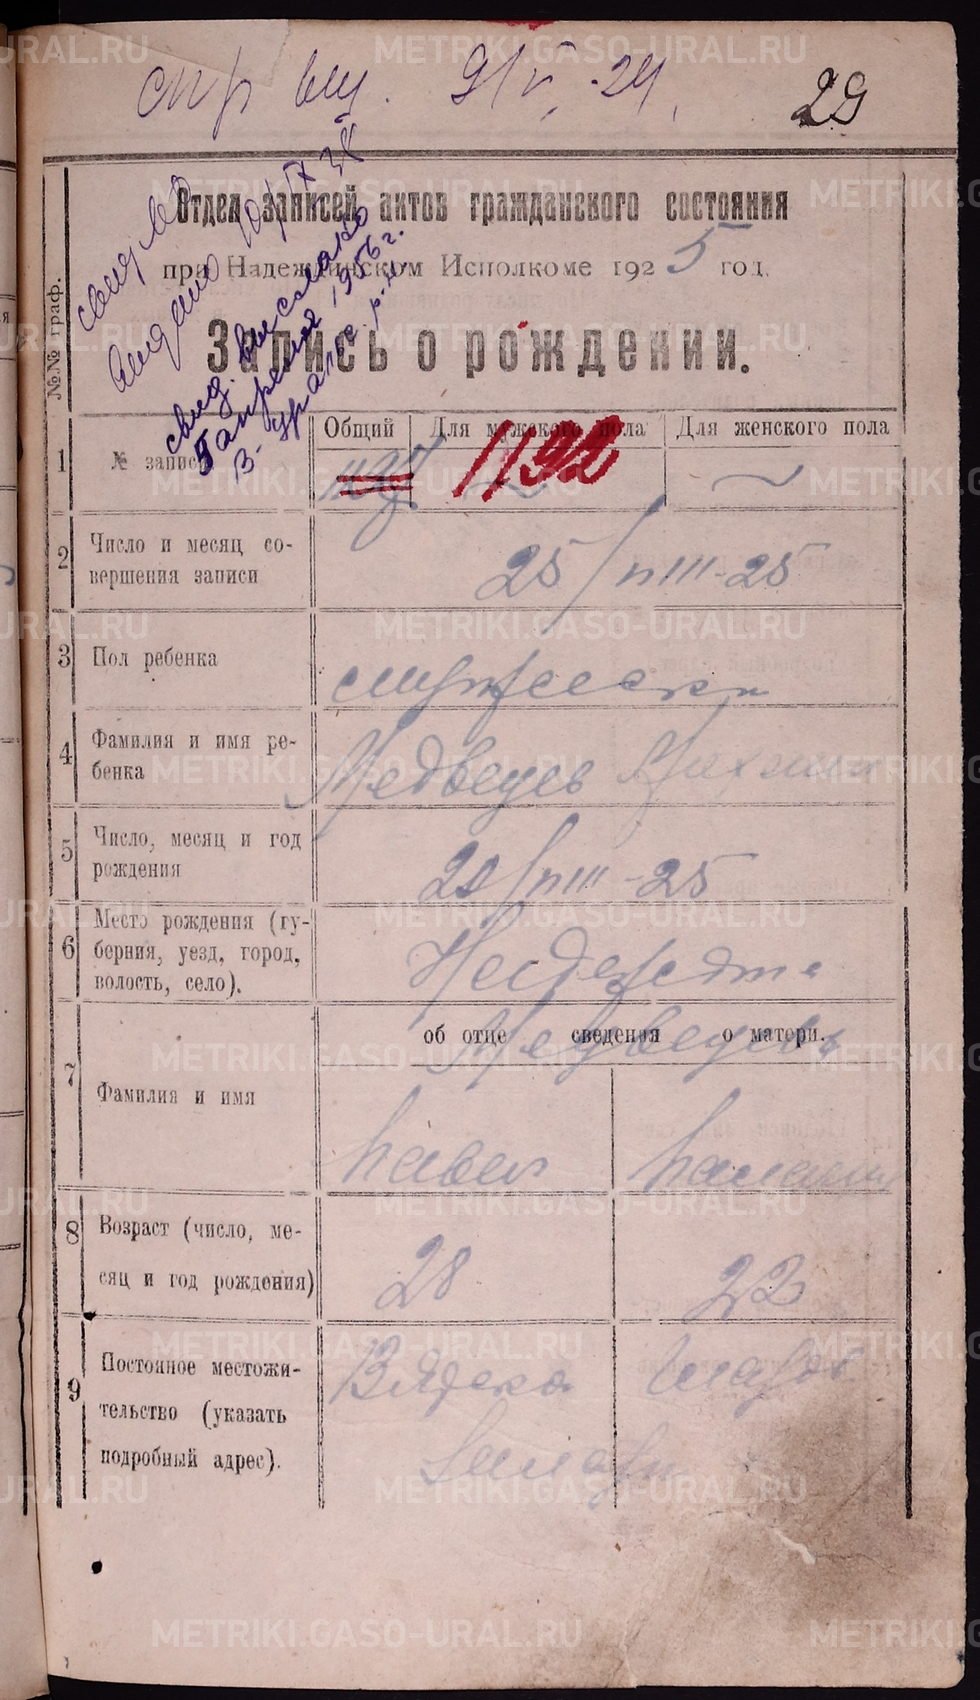 спр выд. 9/V -24.
29
Отдел записей актов гражданского состояния
при Надеждинском Исполкоме 1925 год.
Запись о рождении.
выдано 10/IX ЗК
свид. выслано
5 апреля 1956 г.
№№ граф.
Общий
Для мужского пола
Для женского пола
1
№ записи
1192
2
Число и месяц со-
вершения записи
25/VIII-25
3
Пол ребенка
мужески
4
Фамилия и имя ре-
бенка
Медведев Михаил
5
Число, месяц и год
рождения
20/VIII-25
6
Место рождения (гу-
берния, уезд, город,
волость, село).
7
Фамилия и имя
об отце сведения о матери.
Медведевы
Павел
8
Возраст (число, ме-
сяц и год рождения)
28
22
9
Постоянное местожи-
тельство (указать
подробный адрес).
Вятска
METRIKI.GASO-URAL.RU